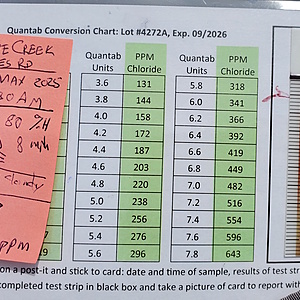 Quantab Conversion Chart: Lot #4272A, Exp. 09/2026
CREEK
RD
MAX 2025
AM
80 %H
8 mph
cloudy
PPM
Quantab Units PPM Chloride Quantab Units PPM Chloride
3.6 131 5.8 318
3.8 144 6.0 341
4.0 158 6.2 366
4.2 172 6.4 392
4.4 187 6.6 419
4.6 203 6.8 449
4.8 220 7.0 482
5.0 238 7.2 516
5.2 256 7.4 554
5.4 276 7.6 596
5.6 296 7.8 643
on a post-it and stick to card: date and time of sample, results of test str
completed test strip in black box and take a picture of card to report wi